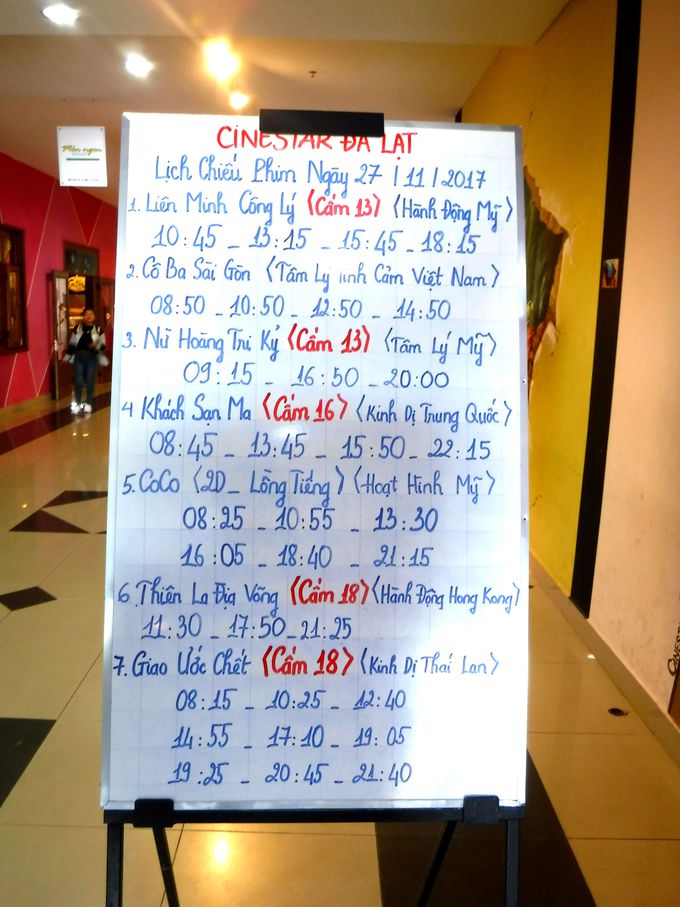 Món ngon
CINESTAR ĐÀ LẠT
Lịch Chiếu Phim Ngày 27 / 11 / 2017
1. Liên Minh Công Lý <Cấm 13> <Hành Động Mỹ>
10:45 - 13:15 - 15:45 - 18:15
2. Cô Ba Sài Gòn <Tâm Lý Tình Cảm Việt Nam>
08:50 - 10:50 - 12:50 - 14:50
3. Nữ Hoàng Tri Kỷ <Cấm 13> <Tâm Lý Mỹ>
09:15 - 16:50 - 20:00
4 Khách Sạn Ma <Cấm 16> <Kinh Dị Trung Quốc>
08:45 - 13:45 - 15:50 - 22:15
5. CoCo <2D_ Lồng Tiếng> <Hoạt Hình Mỹ>
08:25 - 10:55 - 13:30
16:05 - 18:40 - 21:15
6. Thiên La Địa Võng <Cấm 18> <Hành Động Hong Kong>
11:30 - 17:50 - 21:25
7. Giao Ước Chết <Cấm 18> <Kinh Dị Thái Lan>
08:15 - 10:25 - 12:40
14:55 - 17:10 - 19:05
19:25 - 20:45 - 21:40